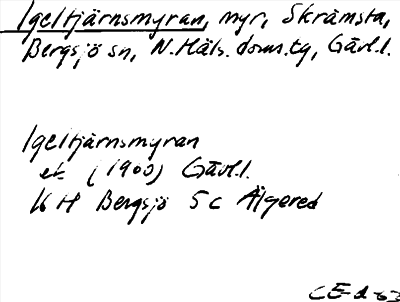 Igeltjärnsmyran, myr, Skrämsta,
Bergsjö sn, N. Häls. doms.tg, Gävl.l.
Igeltjärnsmyran
ek (1900) Gävl.l.
K H Bergsjö 5c Älgered
CE-d-63